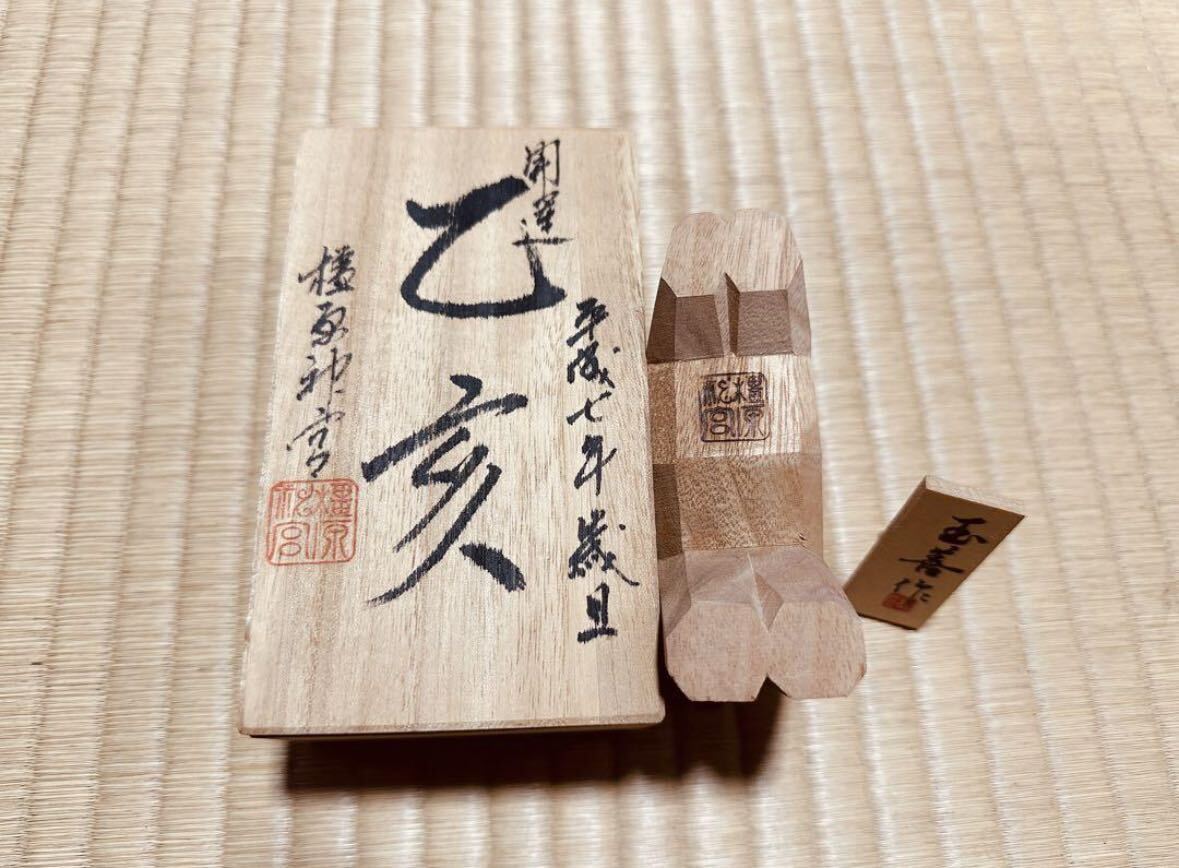 開運
乙亥
平成七年歳旦
橿原神宮
橿原
神宮
橿原
神宮
玉善作